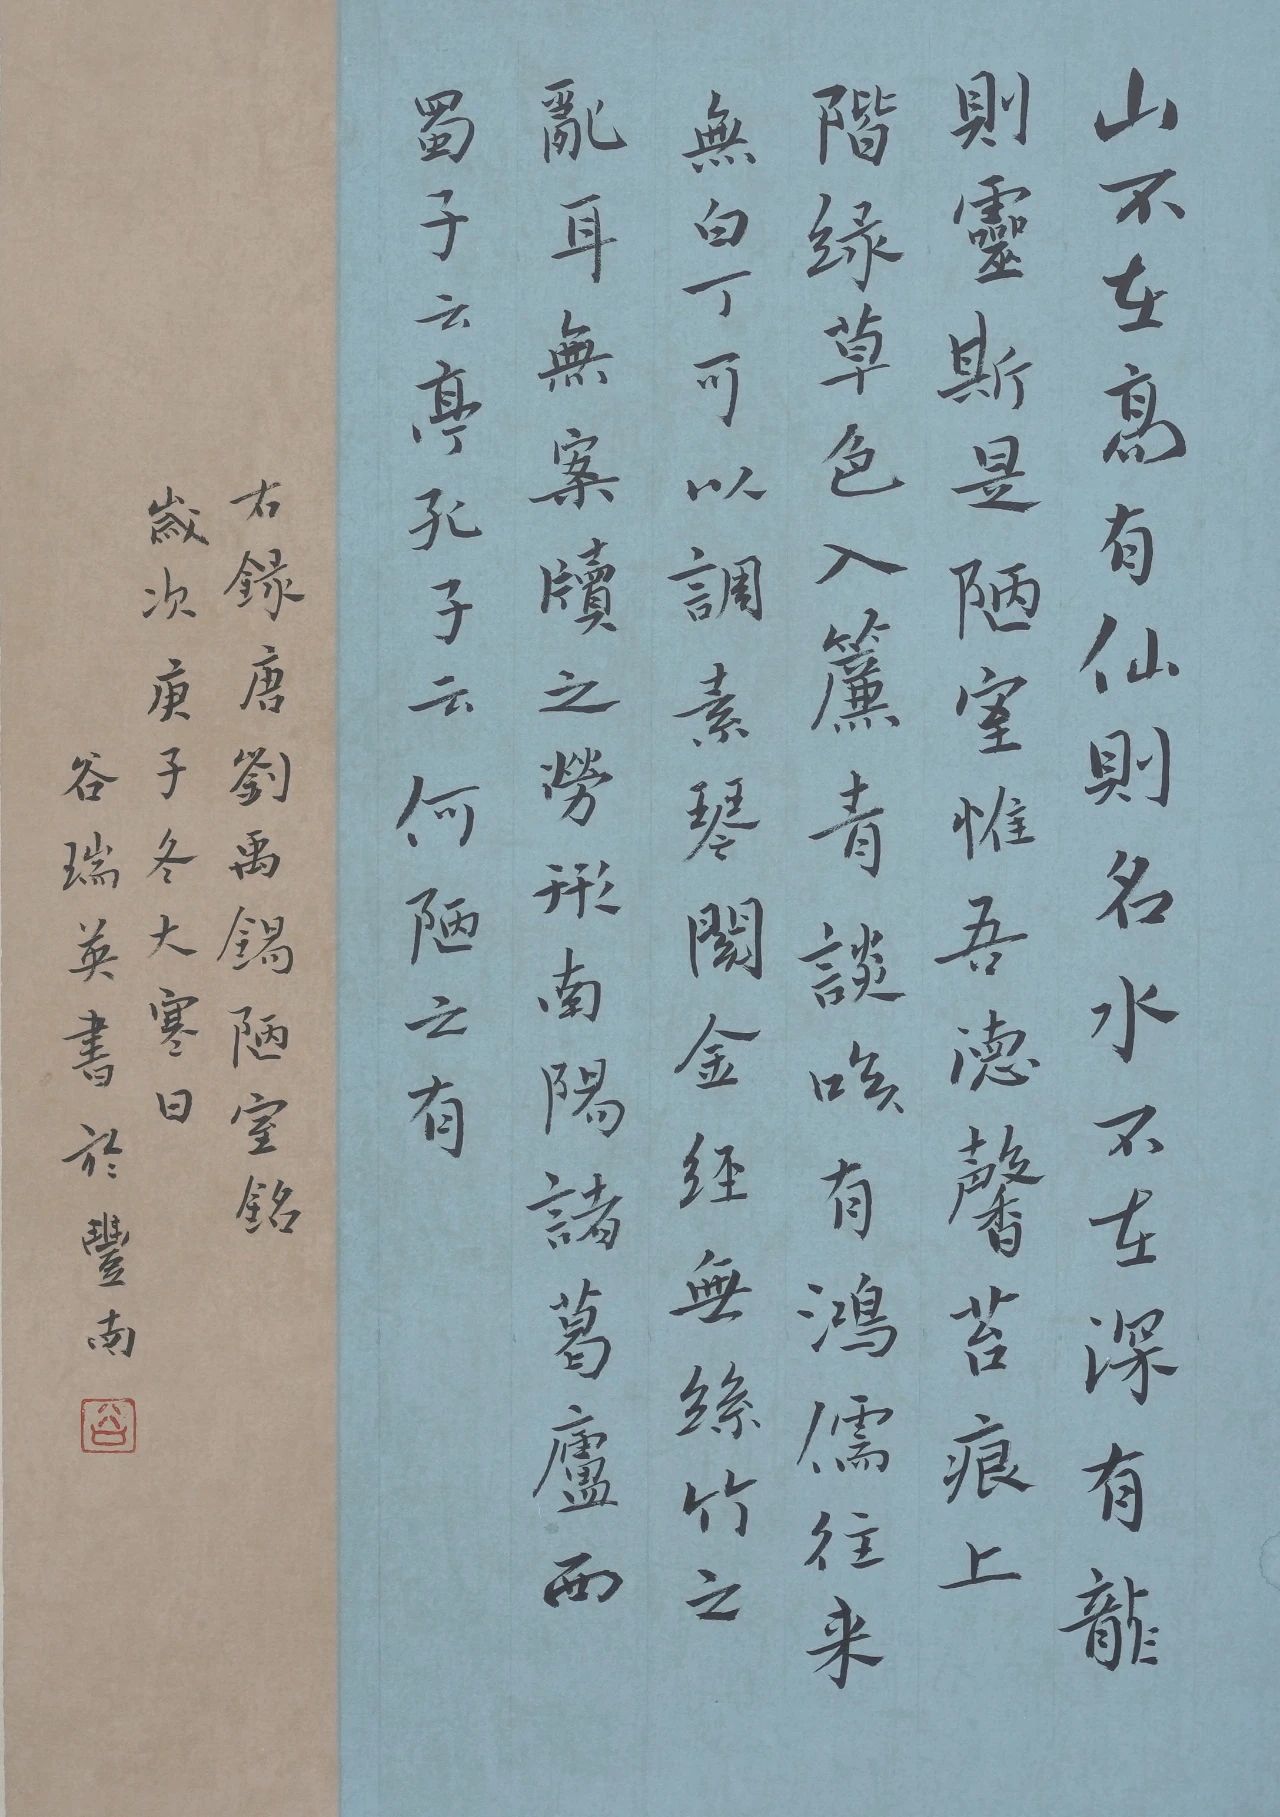 山不在高有仙則名水不在深有龍
則靈斯是陋室惟吾德馨苔痕上
階緑草色入簾青談咲有鴻儒往来
無白丁可以調素琴閱金經無絲竹之
亂耳無案牘之勞形南陽諸葛廬西
蜀子云亭孔子云何陋之有
右録唐劉禹錫陋室銘
歲次庚子冬大寒日
谷瑞英書於豐南
谷